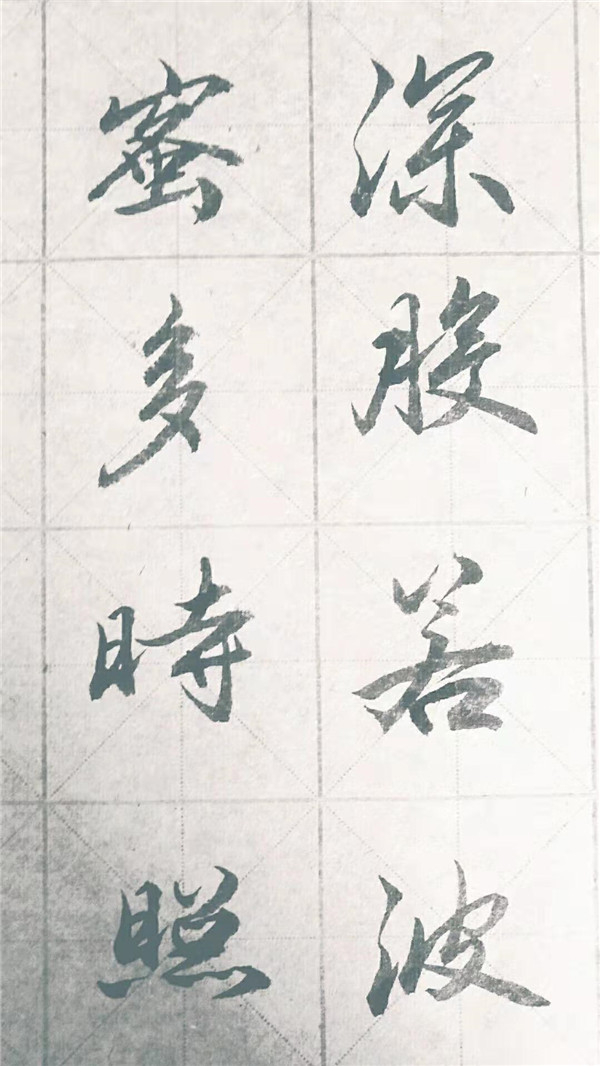 深般若波
蜜多時照